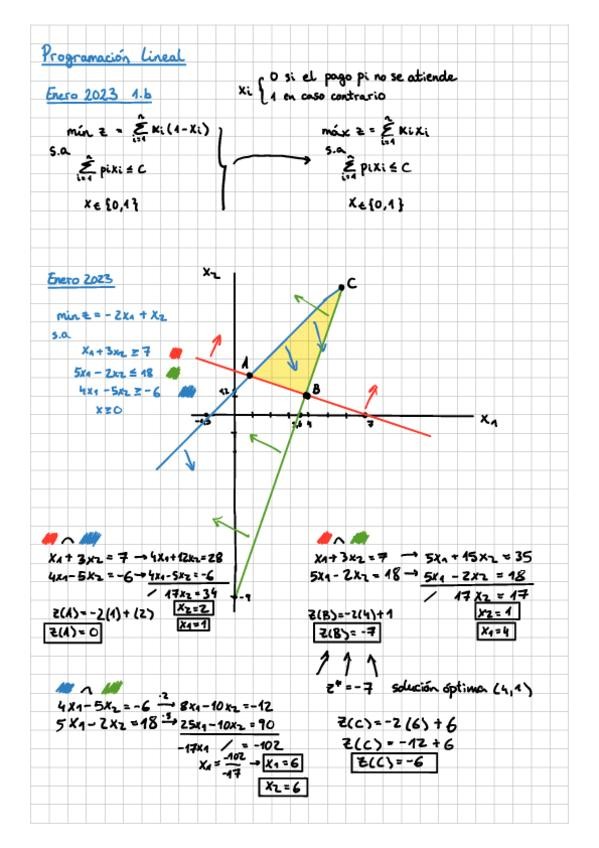 Programación Lineal
Enero 2023 1.b
xi { 0 si el pago pi no se atiende
1 en caso contrario
mín z = Σ(i=1, n) Ki(1-xi)
s.a
Σ(i=1, n) pixi ≤ C
x ∈ {0,1}
máx z = Σ(i=1, n) Kixi
s.a
Σ(i=1, n) pixi ≤ C
x ∈ {0,1}
Enero 2023
mín z = -2x1 + x2
s.a
x1 + 3x2 ≥ 7
5x1 - 2x2 ≤ 18
4x1 - 5x2 ≥ -6
x ≥ 0
x2
C
A
B
x1
4
7
-9
∩
x1 + 3x2 = 7 → 4x1 + 12x2 = 28
4x1 - 5x2 = -6 → 4x1 - 5x2 = -6
/ 17x2 = 34
x2 = 2
x1 = 1
z(A) = -2(1) + (2)
z(A) = 0
∩
x1 + 3x2 = 7 → 5x1 + 15x2 = 35
5x1 - 2x2 = 18 → 5x1 - 2x2 = 18
/ 17x2 = 17
x2 = 1
x1 = 4
z(B) = -2(4) + 1
z(B) = -7
z* = -7 solución óptima (4,1)
∩
4x1 - 5x2 = -6 ·2→ 8x1 - 10x2 = -12
5x1 - 2x2 = 18 ·5→ 25x1 - 10x2 = 90
-17x1 / = -102
x1 = -102/-17 → x1 = 6
x2 = 6
z(C) = -2(6) + 6
z(C) = -12 + 6
z(C) = -6